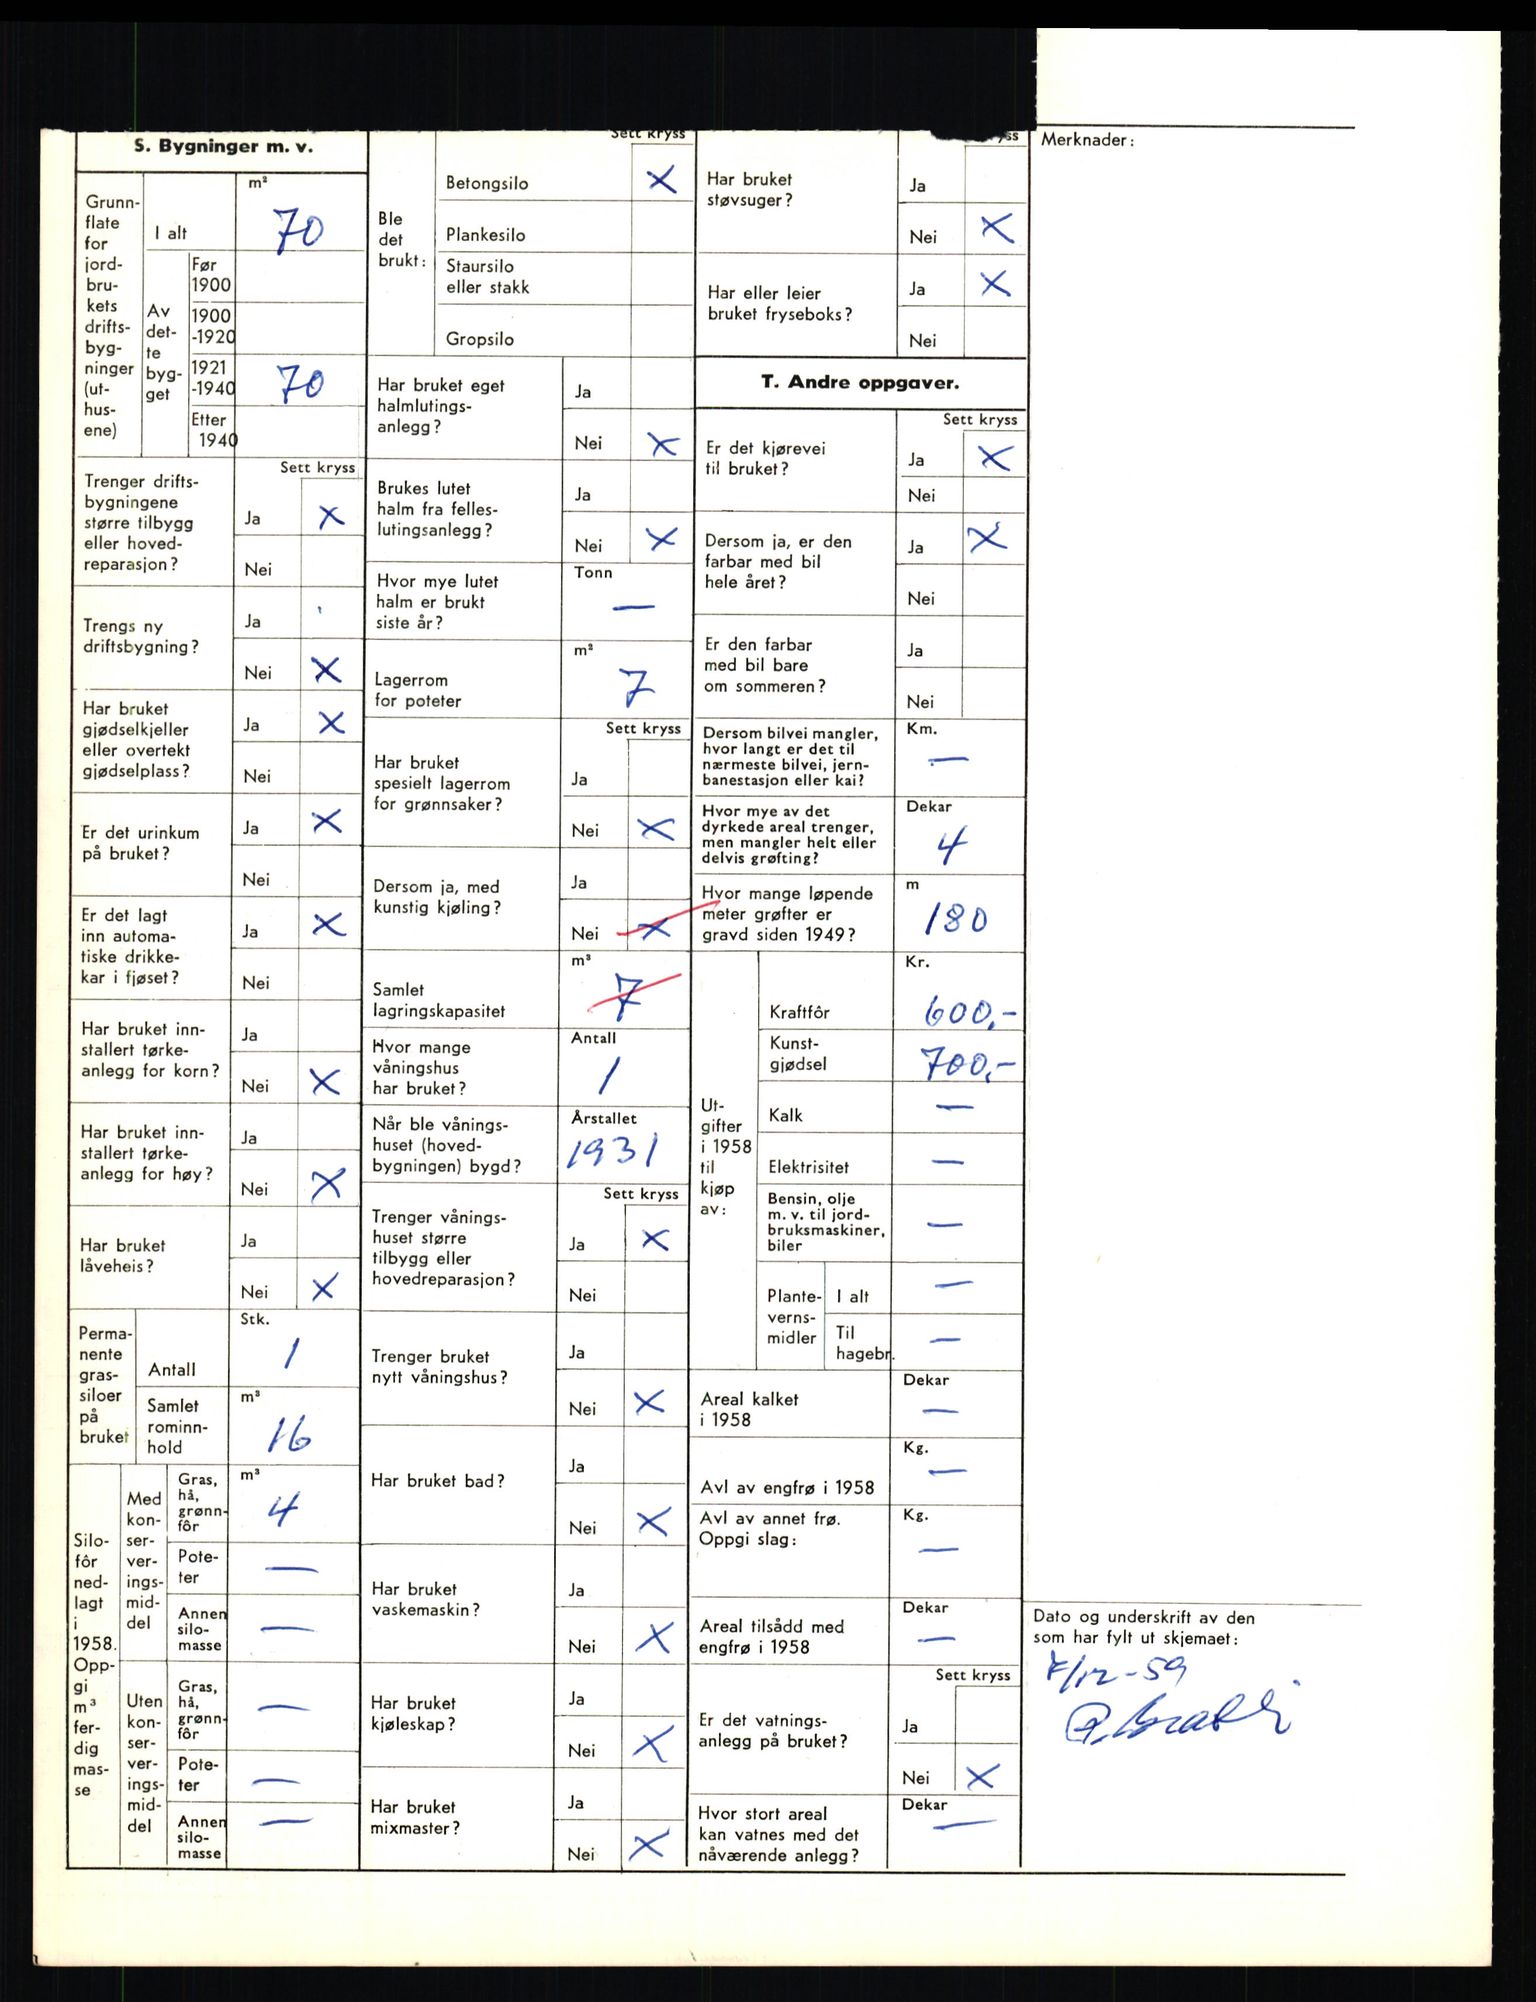 S. Bygninger m. v.
Grunn-
flate
for
jord-
bru-
kets
drifts-
byg-
ninger
(ut-
hus-
ene)
I alt
m²
70
Av
det-
te
byg-
get
Før
1900
1900
-1920
1921
-1940
70
Etter
1940
Sett kryss
Trenger drifts-
bygningene
større tilbygg
eller hoved-
reparasjon?
Ja X
Nei
Trengs ny
driftsbygning?
Ja
Nei X
Har bruket
gjødselkjeller
eller overtekt
gjødselplass?
Ja X
Nei
Er det urinkum
på bruket?
Ja X
Nei
Er det lagt
inn automa-
tiske drikke-
kar i fjøset?
Ja X
Nei
Har bruket inn-
stallert tørke-
anlegg for korn?
Ja
Nei X
Har bruket inn-
stallert tørke-
anlegg for høy?
Ja
Nei X
Har bruket
låveheis?
Ja
Nei X
Perma-
nente
gras-
siloer
på
bruket
Antall
Stk.
1
Samlet
rominn-
hold
m³
16
Silo-
fôr
ned-
lagt
i
1958.
Opp-
gi
m³
fer-
dig
mas-
se
Med
kon-
ser-
ver-
ings-
mid-
del
Gras,
hå,
grønn-
fôr
m³
4
Pote-
ter
—
Annen
silo-
masse
—
Uten
kon-
ser-
ver-
ings-
mid-
del
Gras,
hå,
grønn-
fôr
—
Pote-
ter
—
Annen
silo-
masse
—
Sett kryss
Ble
det
brukt:
Betongsilo X
Plankesilo
Staursilo
eller stakk
Gropsilo
Har bruket eget
halmlutings-
anlegg?
Ja
Nei X
Brukes lutet
halm fra felles-
lutingsanlegg?
Ja
Nei X
Hvor mye lutet
halm er brukt
siste år?
Tonn
—
Lagerrom
for poteter
m²
7
Sett kryss
Har bruket
spesielt lagerrom
for grønnsaker?
Ja
Nei X
Dersom ja, med
kunstig kjøling?
Ja
Nei X
Samlet
lagringskapasitet
m³
7
Hvor mange
våningshus
har bruket?
Antall
1
Når ble vånings-
huset (hoved-
bygningen) bygd?
Årstallet
1931
Sett kryss
Trenger vånings-
huset større
tilbygg eller
hovedreparasjon?
Ja X
Nei
Trenger bruket
nytt våningshus?
Ja
Nei X
Har bruket bad?
Ja
Nei X
Har bruket
vaskemaskin?
Ja
Nei X
Har bruket
kjøleskap?
Ja
Nei X
Har bruket
mixmaster?
Ja
Nei X
Har bruket
støvsuger?
Ja
Nei X
Har eller leier
bruket fryseboks?
Ja X
Nei
T. Andre oppgaver.
Sett kryss
Er det kjørevei
til bruket?
Ja X
Nei
Dersom ja, er den
farbar med bil
hele året?
Ja X
Nei
Er den farbar
med bil bare
om sommeren?
Ja
Nei
Dersom bilvei mangler,
hvor langt er det til
nærmeste bilvei, jern-
banestasjon eller kai?
Km.
—
Hvor mye av det
dyrkede areal trenger,
men mangler helt eller
delvis grøfting?
Dekar
4
Hvor mange løpende
meter grøfter er
gravd siden 1949?
m
180
Ut-
gifter
i 1958
til
kjøp
av:
Kr.
Kraftfôr 600,-
Kunst-
gjødsel 700,-
Kalk —
Elektrisitet —
Bensin, olje
m. v. til jord-
bruksmaskiner,
biler
—
Plante-
verns-
midler
I alt —
Til
hagebr. —
Areal kalket
i 1958
Dekar
—
Avl av engfrø i 1958
Kg.
—
Avl av annet frø.
Oppgi slag:
Kg.
—
Areal tilsådd med
engfrø i 1958
Dekar
—
Sett kryss
Er det vatnings-
anlegg på bruket?
Ja
Nei X
Hvor stort areal
kan vatnes med det
nåværende anlegg?
Dekar
—
Merknader:
Dato og underskrift av den
som har fylt ut skjemaet:
7/12-59